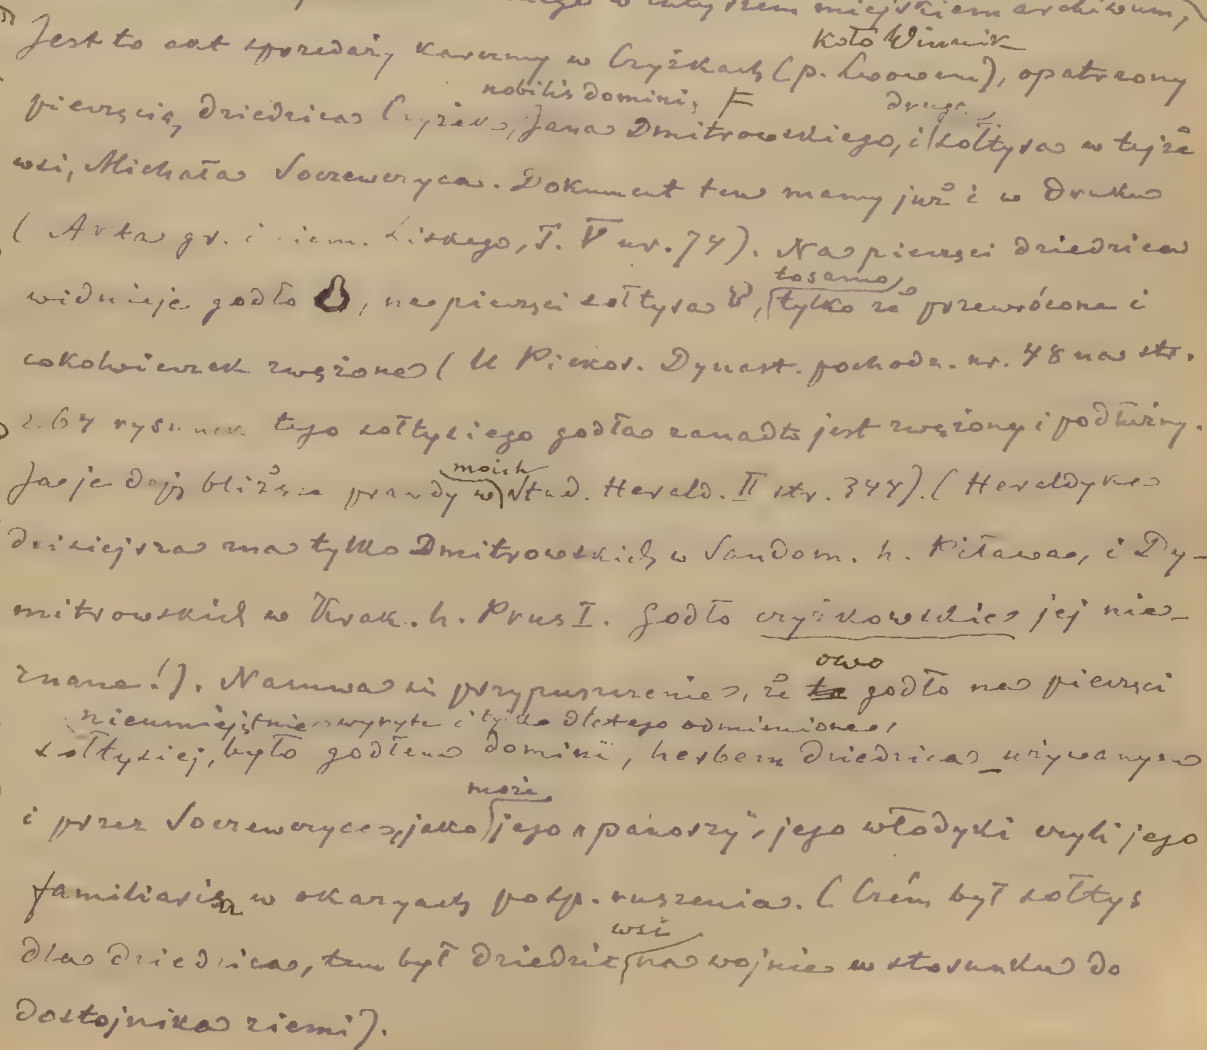 miejskiem archiwum,
koło Winnik
Jest to akt sprzedaży karczmy w Czyżkach (p. Lwowem), opatrzony
nobilis domini, F drugą
pieczęcią, dziedzica Czyżek, Jana Dmitrowskiego, i sołtysa w tejże
wsi, Michała Soczewczyca. Dokument ten mamy już i w druku
(Akta gr. i ziem. Liskego, T. V nr. 74). Na pieczęci dziedzica
to samo,
widnieje godło , na pieczęci sołtysa , tylko że przewrócone i
cokolwieczek zwężone (U Piekos. Dynast. pochodz. nr. 48 na str.
264 rysunek tego sołtysiego godła zanadto jest zwężony i podłużny.
moich
Ja je daję bliższe prawdy w Stud. Herald. II str. 344). (Heraldyka
dzisiejsza zna tylko Dmitrowskich w Sandom. h. Piława, i Dy-
mitrowskich w Krak. h. Prus I. Godło czyżkowskie jej nie-
owo
znane!). Nasuwa się przypuszczenie, że to godło na pieczęci
nieumiejętnie wyryte i tylko dlatego odmienione,
sołtysiej, było godłem domini, herbem dziedzica używanym
może
i przez Soczewczyca, jako jego "panoszy", jego włodyki czyli jego
familiaris w okazyach posp. ruszenia. (Czém był sołtys
wsi
dla dziedzica, tem był dziedzic na wojnie w stosunku do
dostojnika ziemi).